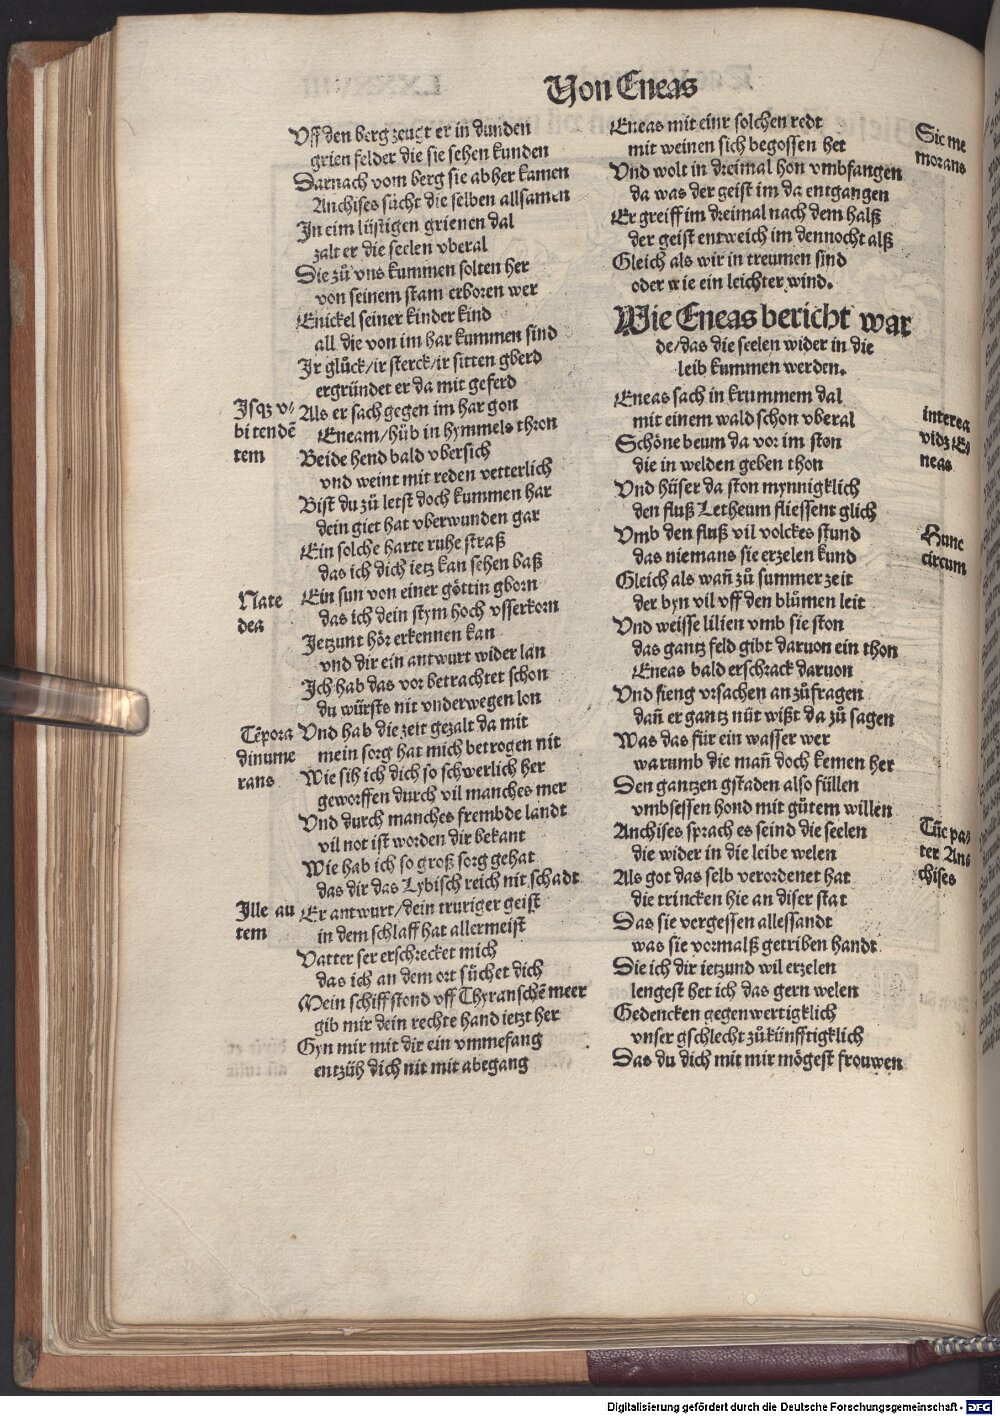 Von Eneas
Vff den berg zeugt er in dunden
grien felder die sie sehen kunden
Darnach vom berg sie abher kamen
Anchises sücht die selben allsamen
In eim lüstigen grienen dal
zalt er die seelen vberal
Die zů vns kummen solten her
von seinem stam erboren wer
Enickel seiner kinder kind
all die von im har kummen sind
Ir glück/ir sterck/ir sitten gberd
ergründet er da mit geferd
Isqꝫ v⸗
bi tendē
tem
Als er sach gegen im har gon
Eneam/hüb in hymmels thron
Beide hend bald vbersich
vnd weint mit reden vetterlich
Bist du zů letst doch kummen har
dein giet hat vberwunden gar
Ein solche harte ruhe straß
das ich dich ietz kan sehen baß
Nate
dea
Ein sun von einer göttin gborn
das ich dein stym hoch vsserkorn
Jetzunt hör erkennen kan
vnd dir ein antwurt wider lan
Ich hab das vor betrachtet schon
du würsts nit vnderwegen lon
Tēpora
dinume
rans
Vnd hab die zeit gezalt da mit
mein sorg hat mich betrogen nit
Wie sih ich dich so schwerlich her
geworffen durch vil manches mer
Vnd durch manches frembde landt
vil not ist worden dir bekant
Wie hab ich so groß sorg gehat
das dir das Lybisch reich nit schadt
Ille au
tem
Er antwurt/dein truriger geist
in dem schlaff hat allermeist
Vatter ser erschrecket mich
das ich an dem ort süchet dich
Mein schiff stond vff Thyranschē meer
gib mir dein rechte hand ietzt her
Gyn mir mit dir ein vmmefang
entzüh dich nit mit abegang
Eneas mit einr solchen redt
mit weinen sich begossen het
Sic me
morans
Vnd wolt in dreimal hon vmbfangen
da was der geist im da entgangen
Er greiff im dreimal nach dem halß
der geist entweich im dennocht alß
Gleich als wir in treumen sind
oder wie ein leichter wind.
Wie Eneas bericht war
de/das die seelen wider in die
leib kummen werden.
Eneas sach in krummem dal
mit einem wald schon vberal
Interea
vidꝫ E⸗
neas
Schöne beum da vor im ston
die in welden geben thon
Vnd hüser da ston mynnigklich
den fluß Letheum fliessent glich
Vmb den fluß vil volckes stund
das niemans sie erzelen kund
Hunc
circum
Gleich als wañ zů summer zeit
der byn vil vff den blůmen leit
Vnd weisse lilien vmb sie ston
das gantz feld gibt daruon ein thon
Eneas bald erschrack daruon
Vnd fieng vrsachen an zůfragen
dañ er gantz nüt wißt da zů sagen
Was das für ein wasser wer
warumb die mañ doch kemen her
Den gantzen gstaden also füllen
vmbsessen hond mit gůtem willen
Tūc pa⸗
ter An⸗
chises
Anchises sprach es seind die seelen
die wider in die leibe welen
Als got das selb verordenet hat
die trincken hie an diser stat
Das sie vergessen allessandt
was sie vormalß getriben handt
Die ich dir ietzund wil erzelen
lengest het ich das gern welen
Gedencken gegenwertigklich
vnser gschlecht zůkünfftigklich
Das du dich mit mir mögest frouwen
Digitalisierung gefördert durch die Deutsche Forschungsgemeinschaft - DFG